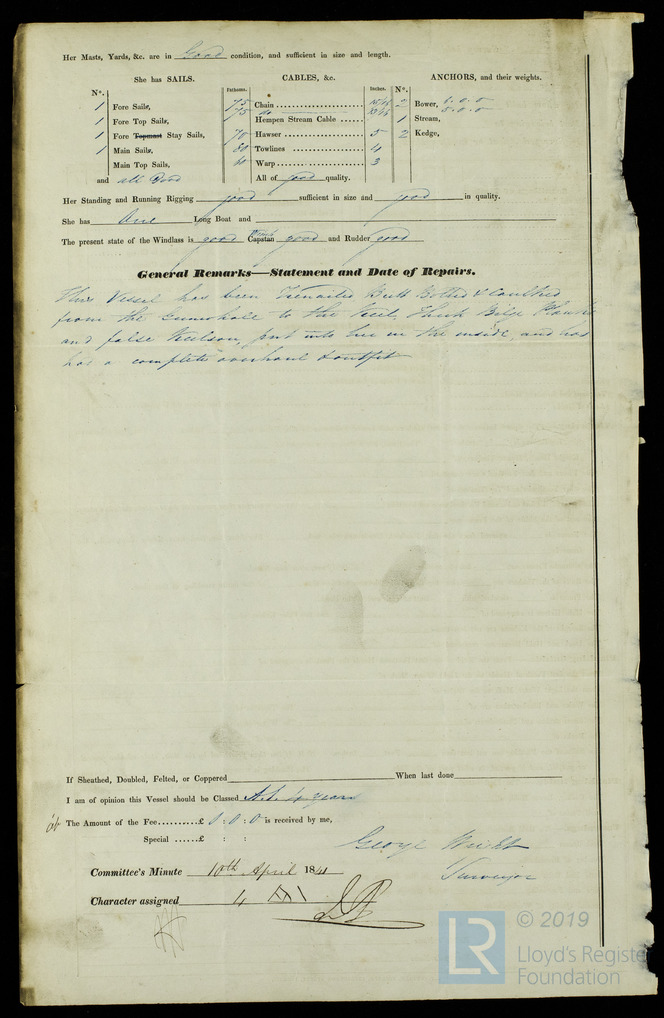 Her Masts, Yards, &c. are in Good condition, and sufficient in size and length.
She has SAILS. CABLES, &c. ANCHORS, and their weights.
N°. Fathoms. Inches. N°.
1 Fore Sails, 75 Chain 2 Bower,
1 Fore Top Sails, 75 do Hempen Stream Cable 1 Stream,
1 Fore Topmast Stay Sails, 70 Hawser 5 2 Kedge,
1 Main Sails, 80 Towlines 4
Main Top Sails, 60 Warp 3
and all Good All of good quality.
Her Standing and Running Rigging good sufficient in size and good in quality.
She has One Long Boat and
The present state of the Windlass is good Capstan good and Rudder good
General Remarks—Statement and Date of Repairs.
This Vessel has been Trenailed Butt Bolted & Caulked
from the Gunwhale to the Keel, Thick Bilge Planks
and false Keelson, put into her in the inside, and has
has a complete overhaul & outfit
If Sheathed, Doubled, Felted, or Coppered When last done
I am of opinion this Vessel should be Classed A.1. 4 years
The Amount of the Fee £ 0 : 0 : 0 is received by me,
Special £ : :
George Wright
Surveyor
Committee's Minute 10th April 1841
Character assigned 4 A1
© 2019
LR
Lloyd's Register
Foundation